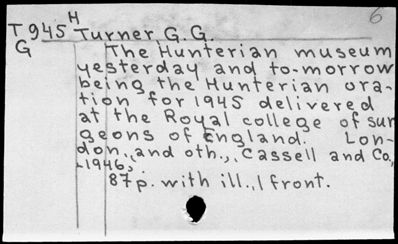 6
T945H Turner G.G.
G
The Hunterian museum
yesterday and to-morrow
being the Hunterian ora-
tion for 1945 delivered
at the Royal college of sur
geons of England. Lon-
don, and oth., Cassell and Co.,
-1946,
87p. with ill., 1 front.